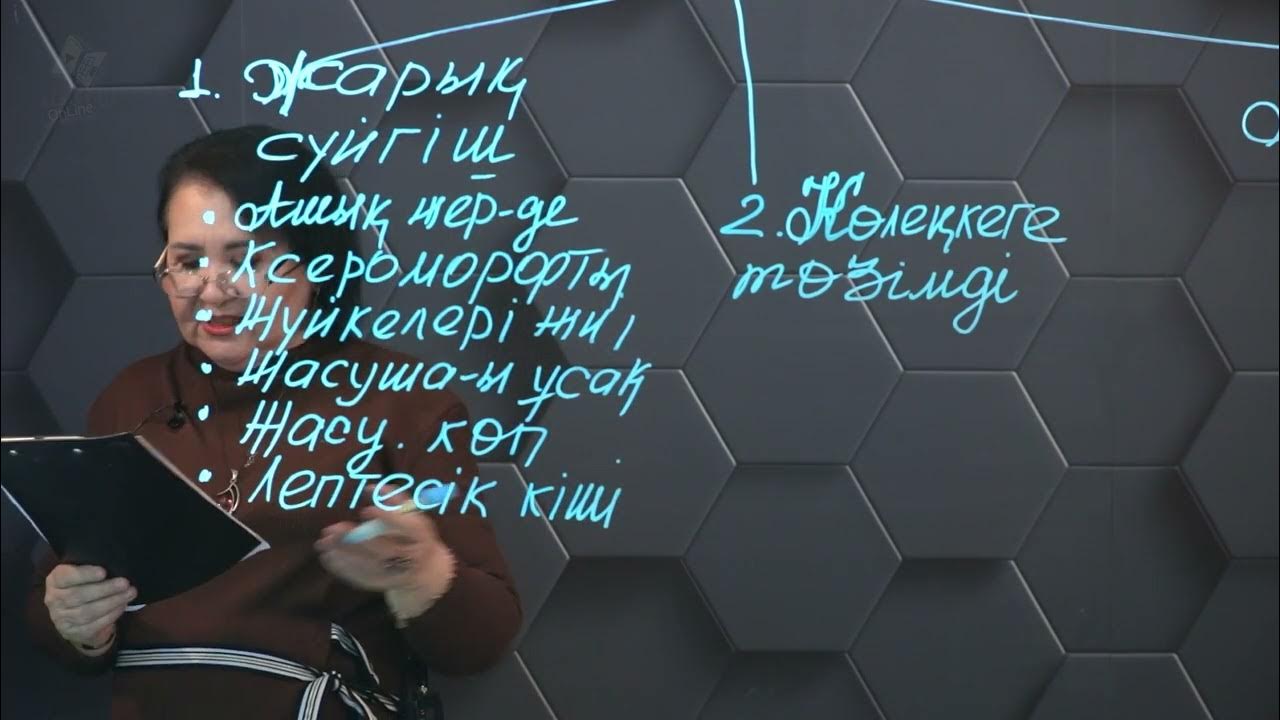 OnLine
1. Жарық
сүйгіш
• Ашық жер-де
• Ксероморфты
• Жүйкелері жиі
• Жасуша-ы ұсақ
• Жасу. көп
• Лептесік кіші
2. Көлеңкеге
төзімді